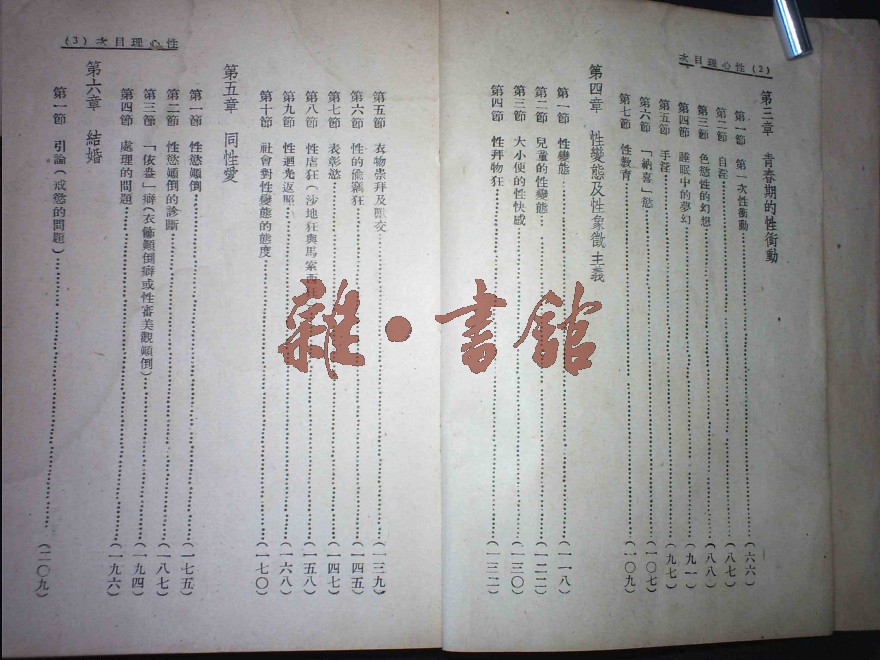 (2)性心理目次
第三章　青春期的性衝動
第一節　第一次性衝動……(六六)
第二節　自淫……(八七)
第三節　色慾性的幻想……(八八)
第四節　睡眠中的夢幻……(九一)
第五節　手淫……(九七)
第六節　「納喜」慾……(一〇七)
第七節　性教育……(一〇九)
第四章　性變態及性象徵主義
第一節　性變態……(一一八)
第二節　兒童的性變態……(一二二)
第三節　大小便的性快感……(一三〇)
第四節　性拜物狂……(一三二)
性心理目次(3)
第五節　衣物崇拜及獸交……(一三九)
第六節　性的偷竊狂……(一四五)
第七節　表彰慾……(一四七)
第八節　性虐狂(沙地狂與馬索西……(一五八)
第九節　性迴光返照……(一六八)
第十節　社會對性變態的態度……(一七〇)
第五章　同性愛
第一節　性慾顛倒……(一七五)
第二節　性慾顛倒的診斷……(一八七)
第三節　「依盎」癖(衣飾顛倒癖或性審美觀顛倒)……(一九四)
第四節　處理的問題……(一九六)
第六章　結婚
第一節　引論(戒慾的問題)……(二〇九)
雜・書館